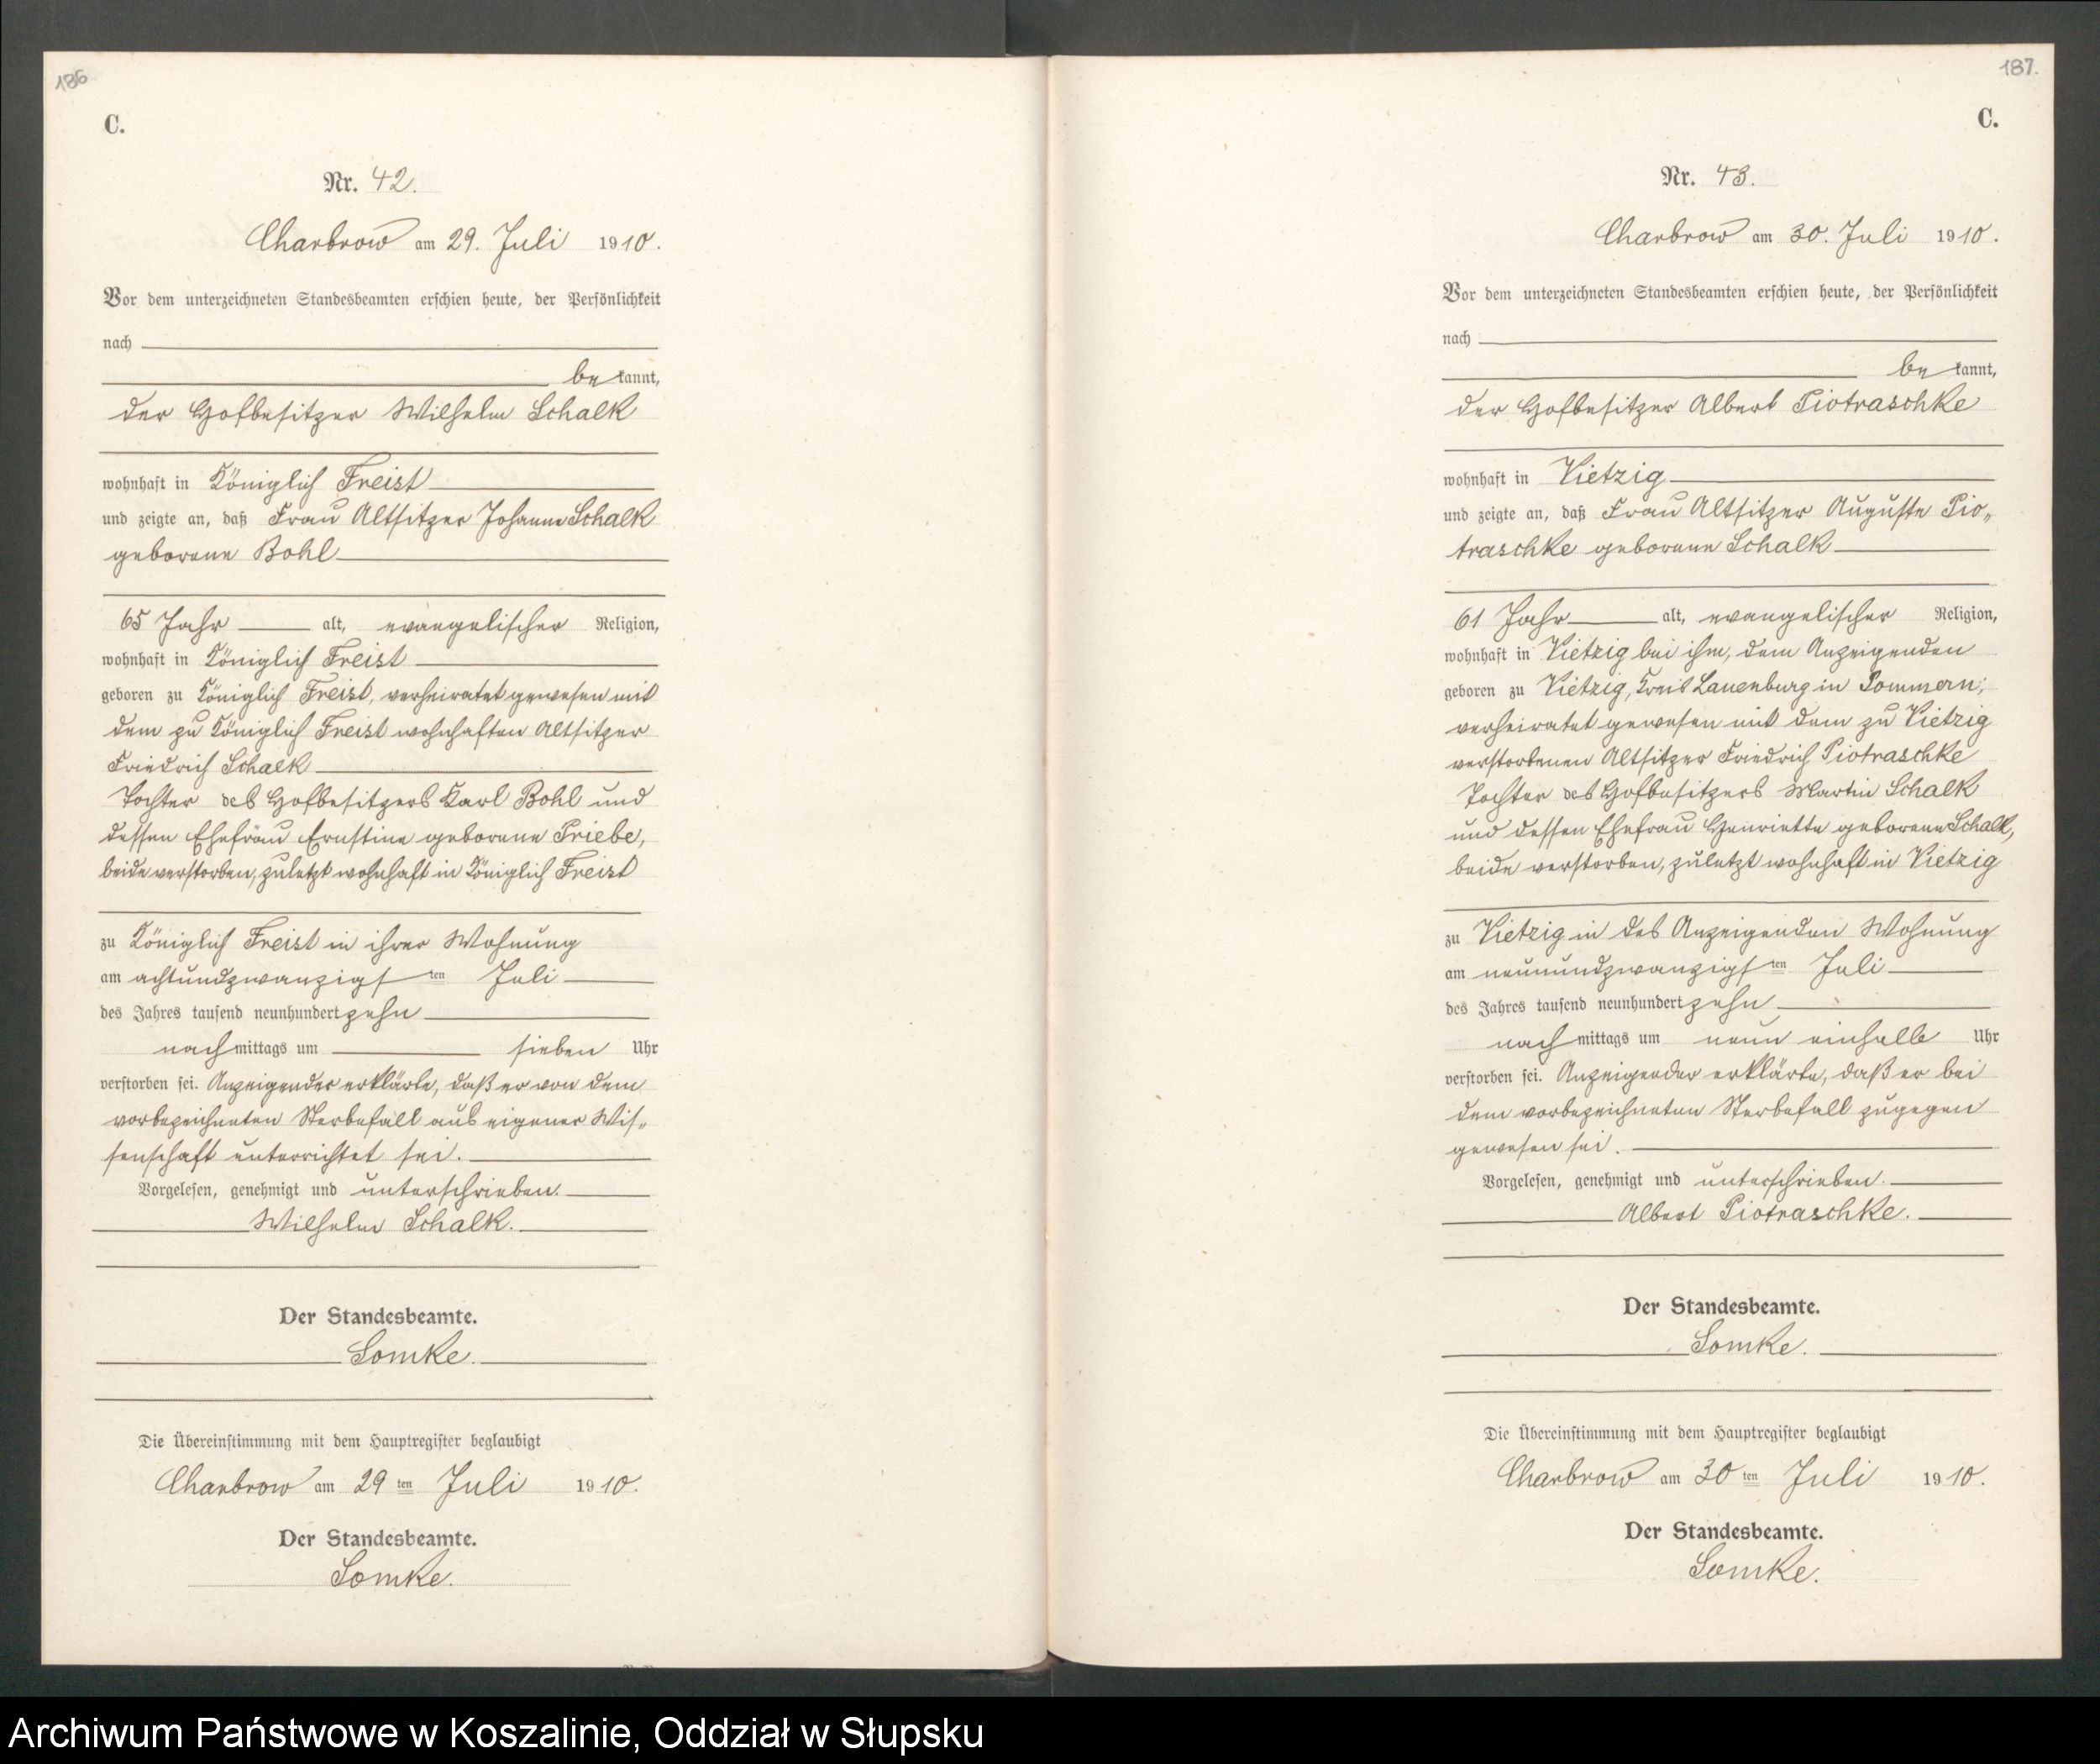 186
C.
Nr. 42.
Charbrow am 29. Juli 1910.
Vor dem unterzeichneten Standesbeamten erschien heute, der Persönlichkeit
nach
bekannt,
der Hofbesitzer Wilhelm Schalk
wohnhaft in Königlich Freist
und zeigte an, daß Frau Altsitzer Johanne Schalk
geborene Bohl
65 Jahr alt, evangelischer Religion,
wohnhaft in Königlich Freist
geboren zu Königlich Freist, verheiratet gewesen mit
dem zu Königlich Freist wohnhaften Altsitzer
Friedrich Schalk
Tochter des Hofbesitzers Karl Bohl und
dessen Ehefrau Ernstine geborene Priebe,
beide verstorben, zuletzt wohnhaft in Königlich Freist
zu Königlich Freist in ihrer Wohnung
am achtundzwanzigsten Juli
des Jahres tausend neunhundert zehn
nachmittags um sieben Uhr
verstorben sei. Anzeigender erklärte, daß er von dem
vorbezeichneten Sterbefall aus eigener Wis„
senschaft unterrichtet sei.
Vorgelesen, genehmigt und unterschrieben.
Wilhelm Schalk.
Der Standesbeamte.
Lomke.
Die Übereinstimmung mit dem Hauptregister beglaubigt
Charbrow am 29ten Juli 1910.
Der Standesbeamte.
Lomke.
187.
C.
Nr. 43.
Charbrow am 30. Juli 1910.
Vor dem unterzeichneten Standesbeamten erschien heute, der Persönlichkeit
nach
bekannt,
der Hofbesitzer Albert Piotraschke
wohnhaft in Vietzig
und zeigte an, daß Frau Altsitzer Auguste Pio„
traschke geborene Schalk
61 Jahr alt, evangelischer Religion,
wohnhaft in Vietzig bei ihm, dem Anzeigenden
geboren zu Vietzig, Kreis Lauenburg in Pommern,
verheiratet gewesen mit dem zu Vietzig
verstorbenen Altsitzer Friedrich Piotraschke
Tochter des Hofbesitzers Martin Schalk
und dessen Ehefrau Henriette geborene Schalk,
beide verstorben, zuletzt wohnhaft in Vietzig
zu Vietzig in des Anzeigenden Wohnung
am neunundzwanzigsten Juli
des Jahres tausend neunhundert zehn
nachmittags um neun einhalb Uhr
verstorben sei. Anzeigender erklärte, daß er bei
dem vorbezeichneten Sterbefall zugegen
gewesen sei.
Vorgelesen, genehmigt und unterschrieben.
Albert Piotraschke.
Der Standesbeamte.
Lomke.
Die Übereinstimmung mit dem Hauptregister beglaubigt
Charbrow am 30ten Juli 1910.
Der Standesbeamte.
Lomke.
Archiwum Państwowe w Koszalinie, Oddział w Słupsku